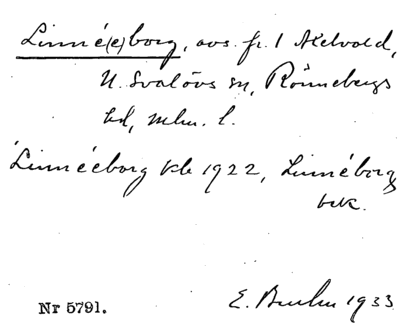 Linné(e)borg, avs. fr. 1 Axelvold,
N. Svalövs sn, Rönnebergs
hd, Mlm. l.
Linnéeborg kb 1922, Linnéborg
bek.
Nr 5791. E. 1933